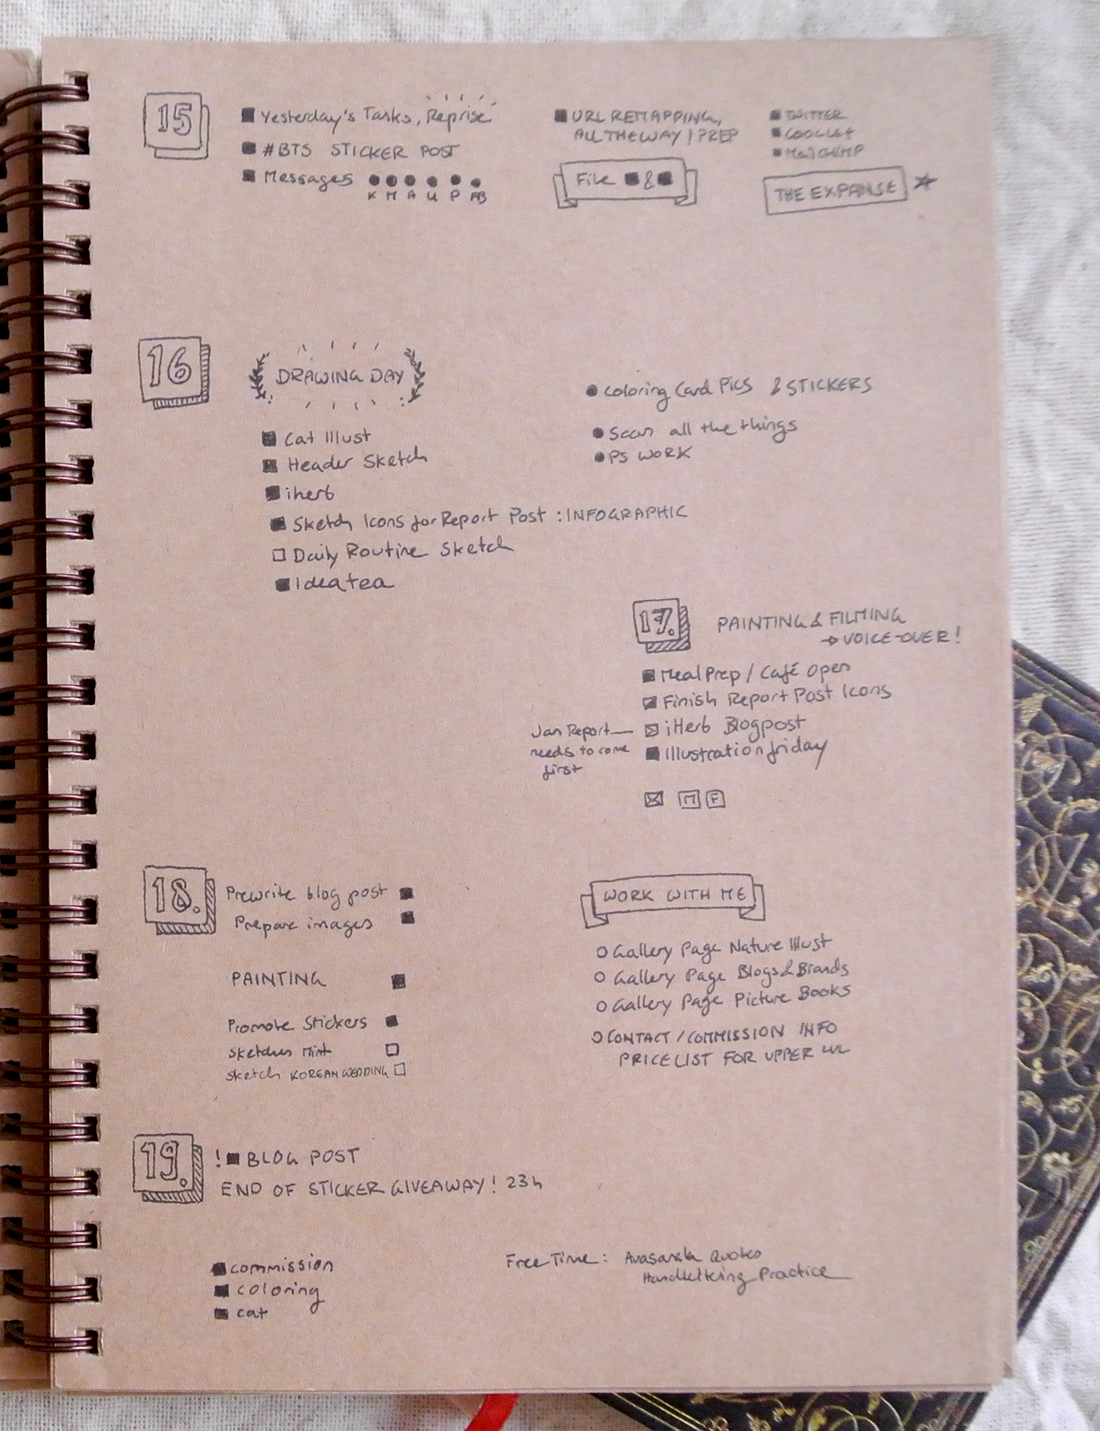 15
Yesterday's Tasks, Reprise
#BTS STICKER POST
Messages
K M A U P FB
URL REMAPPING,
ALL THE WAY / PREP
File &
TWITTER
GOOGLE+
MailCHIMP
THE EXPANSE
16
DRAWING DAY
Cat Illust
Header Sketch
iherb
Sketch Icons for Report Post : INFOGRAPHIC
Daily Routine Sketch
Ideatea
Coloring Card Pics & STICKERS
Scan all the things
PS WORK
17.
PAINTING & FILMING
→ VOICE-OVER!
Meal Prep / Café Open
Finish Report Post Icons
iHerb Blogpost
Illustrationfriday
Jan Report
needs to come
first
M F
18.
Prewrite blog post
Prepare images
PAINTING
Promote Stickers
Sketches Mint
Sketch KOREAN WEDDING
WORK WITH ME
Gallery Page Nature Illust
Gallery Page Blogs & Brands
Gallery Page Picture Books
CONTACT / COMMISSION INFO
PRICELIST FOR UPPER LVL
19.
! BLOG POST
END OF STICKER GIVEAWAY! 23h
commission
coloring
cat
Free Time: Avasarala Quotes
Handlettering Practice